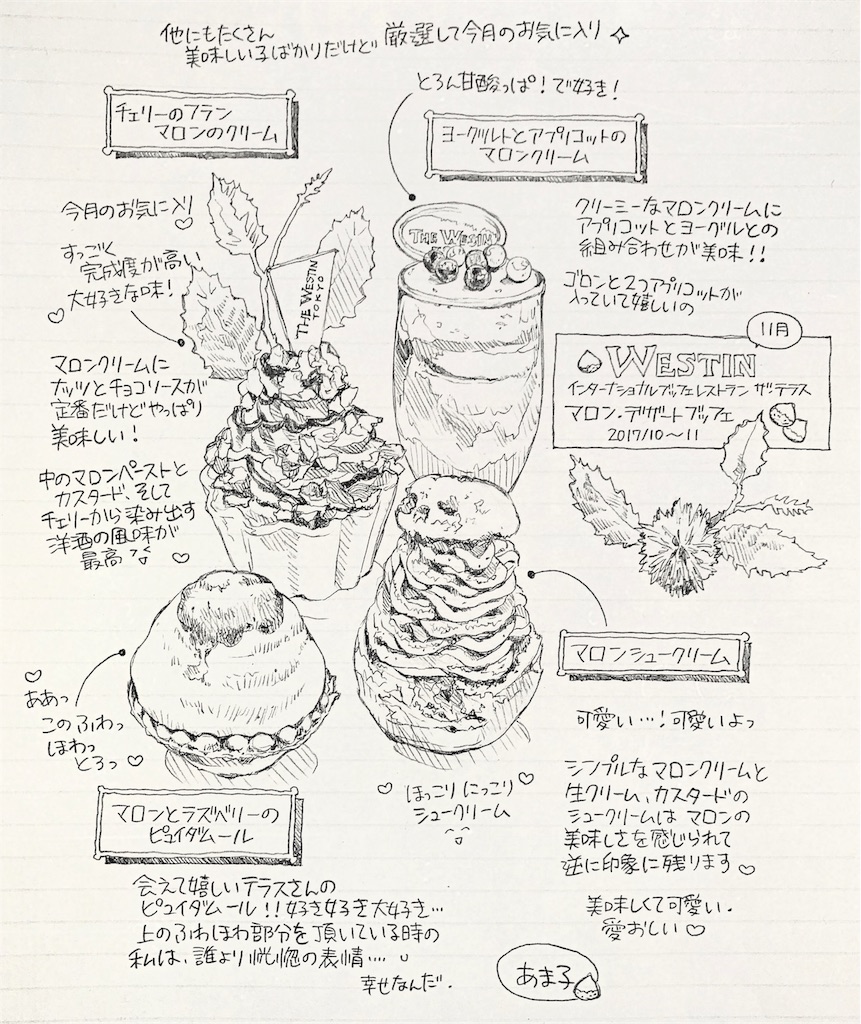 他にもたくさん
美味しい子ばかりだけど 厳選して今月のお気に入り
とろん甘酸っぱ！で好き！
チェリーのフラン
マロンのクリーム
ヨーグルトとアプリコットの
マロンクリーム
今月のお気に入り♡
すっごく
完成度が高い
大好きな味！
♡
マロンクリームに
ナッツとチョコソースが
定番だけどやっぱり
美味しい！
中のマロンペーストと
カスタード、そして
チェリーから染み出す
洋酒の風味が
最高 ♡
THE WESTIN
TOKYO
THE WESTIN
クリーミーなマロンクリームに
アプリコットとヨーグルトの
組み合わせが美味！！
ゴロンと2つアプリコットが
入っていて嬉しいの
11月
WESTIN
インターナショナルブッフェレストラン ザ・テラス
マロン・デザートブッフェ
2017/10〜11
マロンシュークリーム
可愛い…！可愛いよっ
シンプルなマロンクリームと
生クリーム、カスタードの
シュークリームは マロンの
美味しさを感じられて
逆に印象に残ります♡
美味しくて可愛い.
愛おしい♡
♡ ほっこり にっこり ♡
シュークリーム
♡
ああっ
このふわっ
ほわっ
とろっ♡
マロンとラズベリーの
ピュイダムール
会えて嬉しいテラスさんの
ピュイダムール！！好き好き大好き…
上のふわほわ部分を頂いている時の
私は、誰より恍惚の表情….
幸せなんだ.
あま子